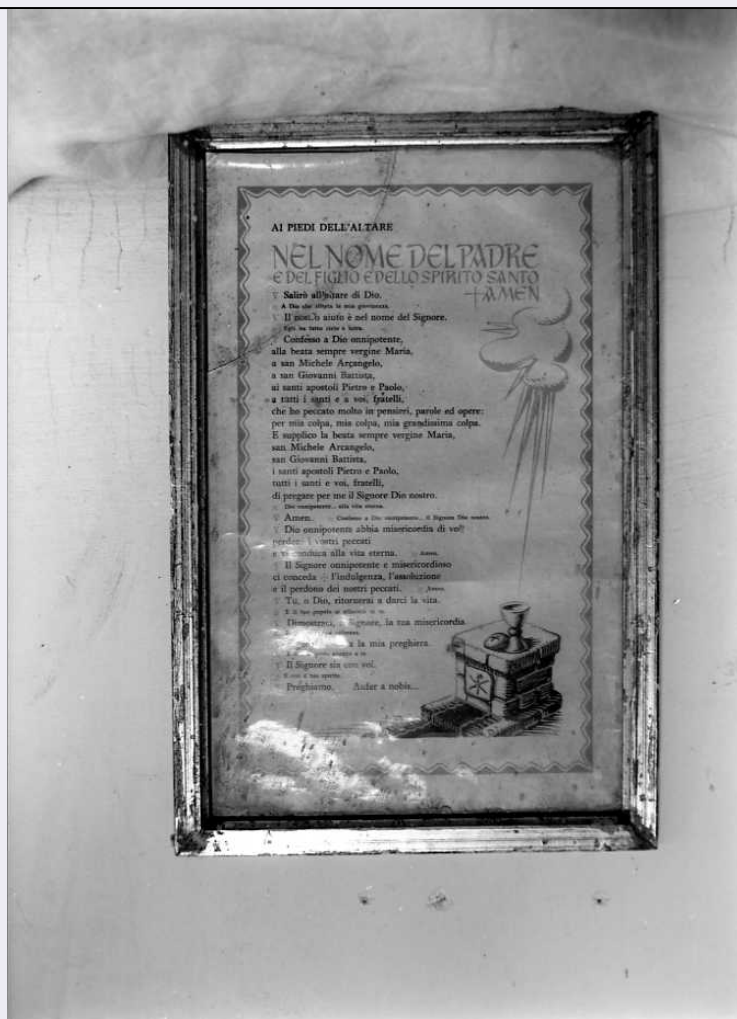 AI PIEDI DELL'ALTARE
NEL NOME DEL PADRE
E DEL FIGLIO E DELLO SPIRITO SANTO
+ AMEN
V Salirò all'altare di Dio.
A Dio che allieta la mia giovinezza.
V Il nostro aiuto è nel nome del Signore.
Egli ha fatto cielo e terra.
V Confesso a Dio onnipotente,
alla beata sempre vergine Maria,
a san Michele Arcangelo,
a san Giovanni Battista,
ai santi apostoli Pietro e Paolo,
a tutti i santi e a voi, fratelli,
che ho peccato molto in pensieri, parole ed opere:
per mia colpa, mia colpa, mia grandissima colpa.
E supplico la beata sempre vergine Maria,
san Michele Arcangelo,
san Giovanni Battista,
i santi apostoli Pietro e Paolo,
tutti i santi e voi, fratelli,
di pregare per me il Signore Dio nostro.
Dio onnipotente... alla vita eterna.
V Amen. Confesso a Dio onnipotente... il Signore Dio nostro.
V Dio onnipotente abbia misericordia di voi
perdoni i vostri peccati
e vi conduca alla vita eterna. Amen.
V Il Signore onnipotente e misericordioso
ci conceda + l'indulgenza, l'assoluzione
e il perdono dei nostri peccati. Amen.
V Tu, o Dio, ritornerai a darci la vita.
E il tuo popolo si allieterà in te.
V Dimostraci, o Signore, la tua misericordia
a la mia preghiera.
V Il Signore sia con voi.
E con il tuo spirito.
Preghiamo. Aufer a nobis...